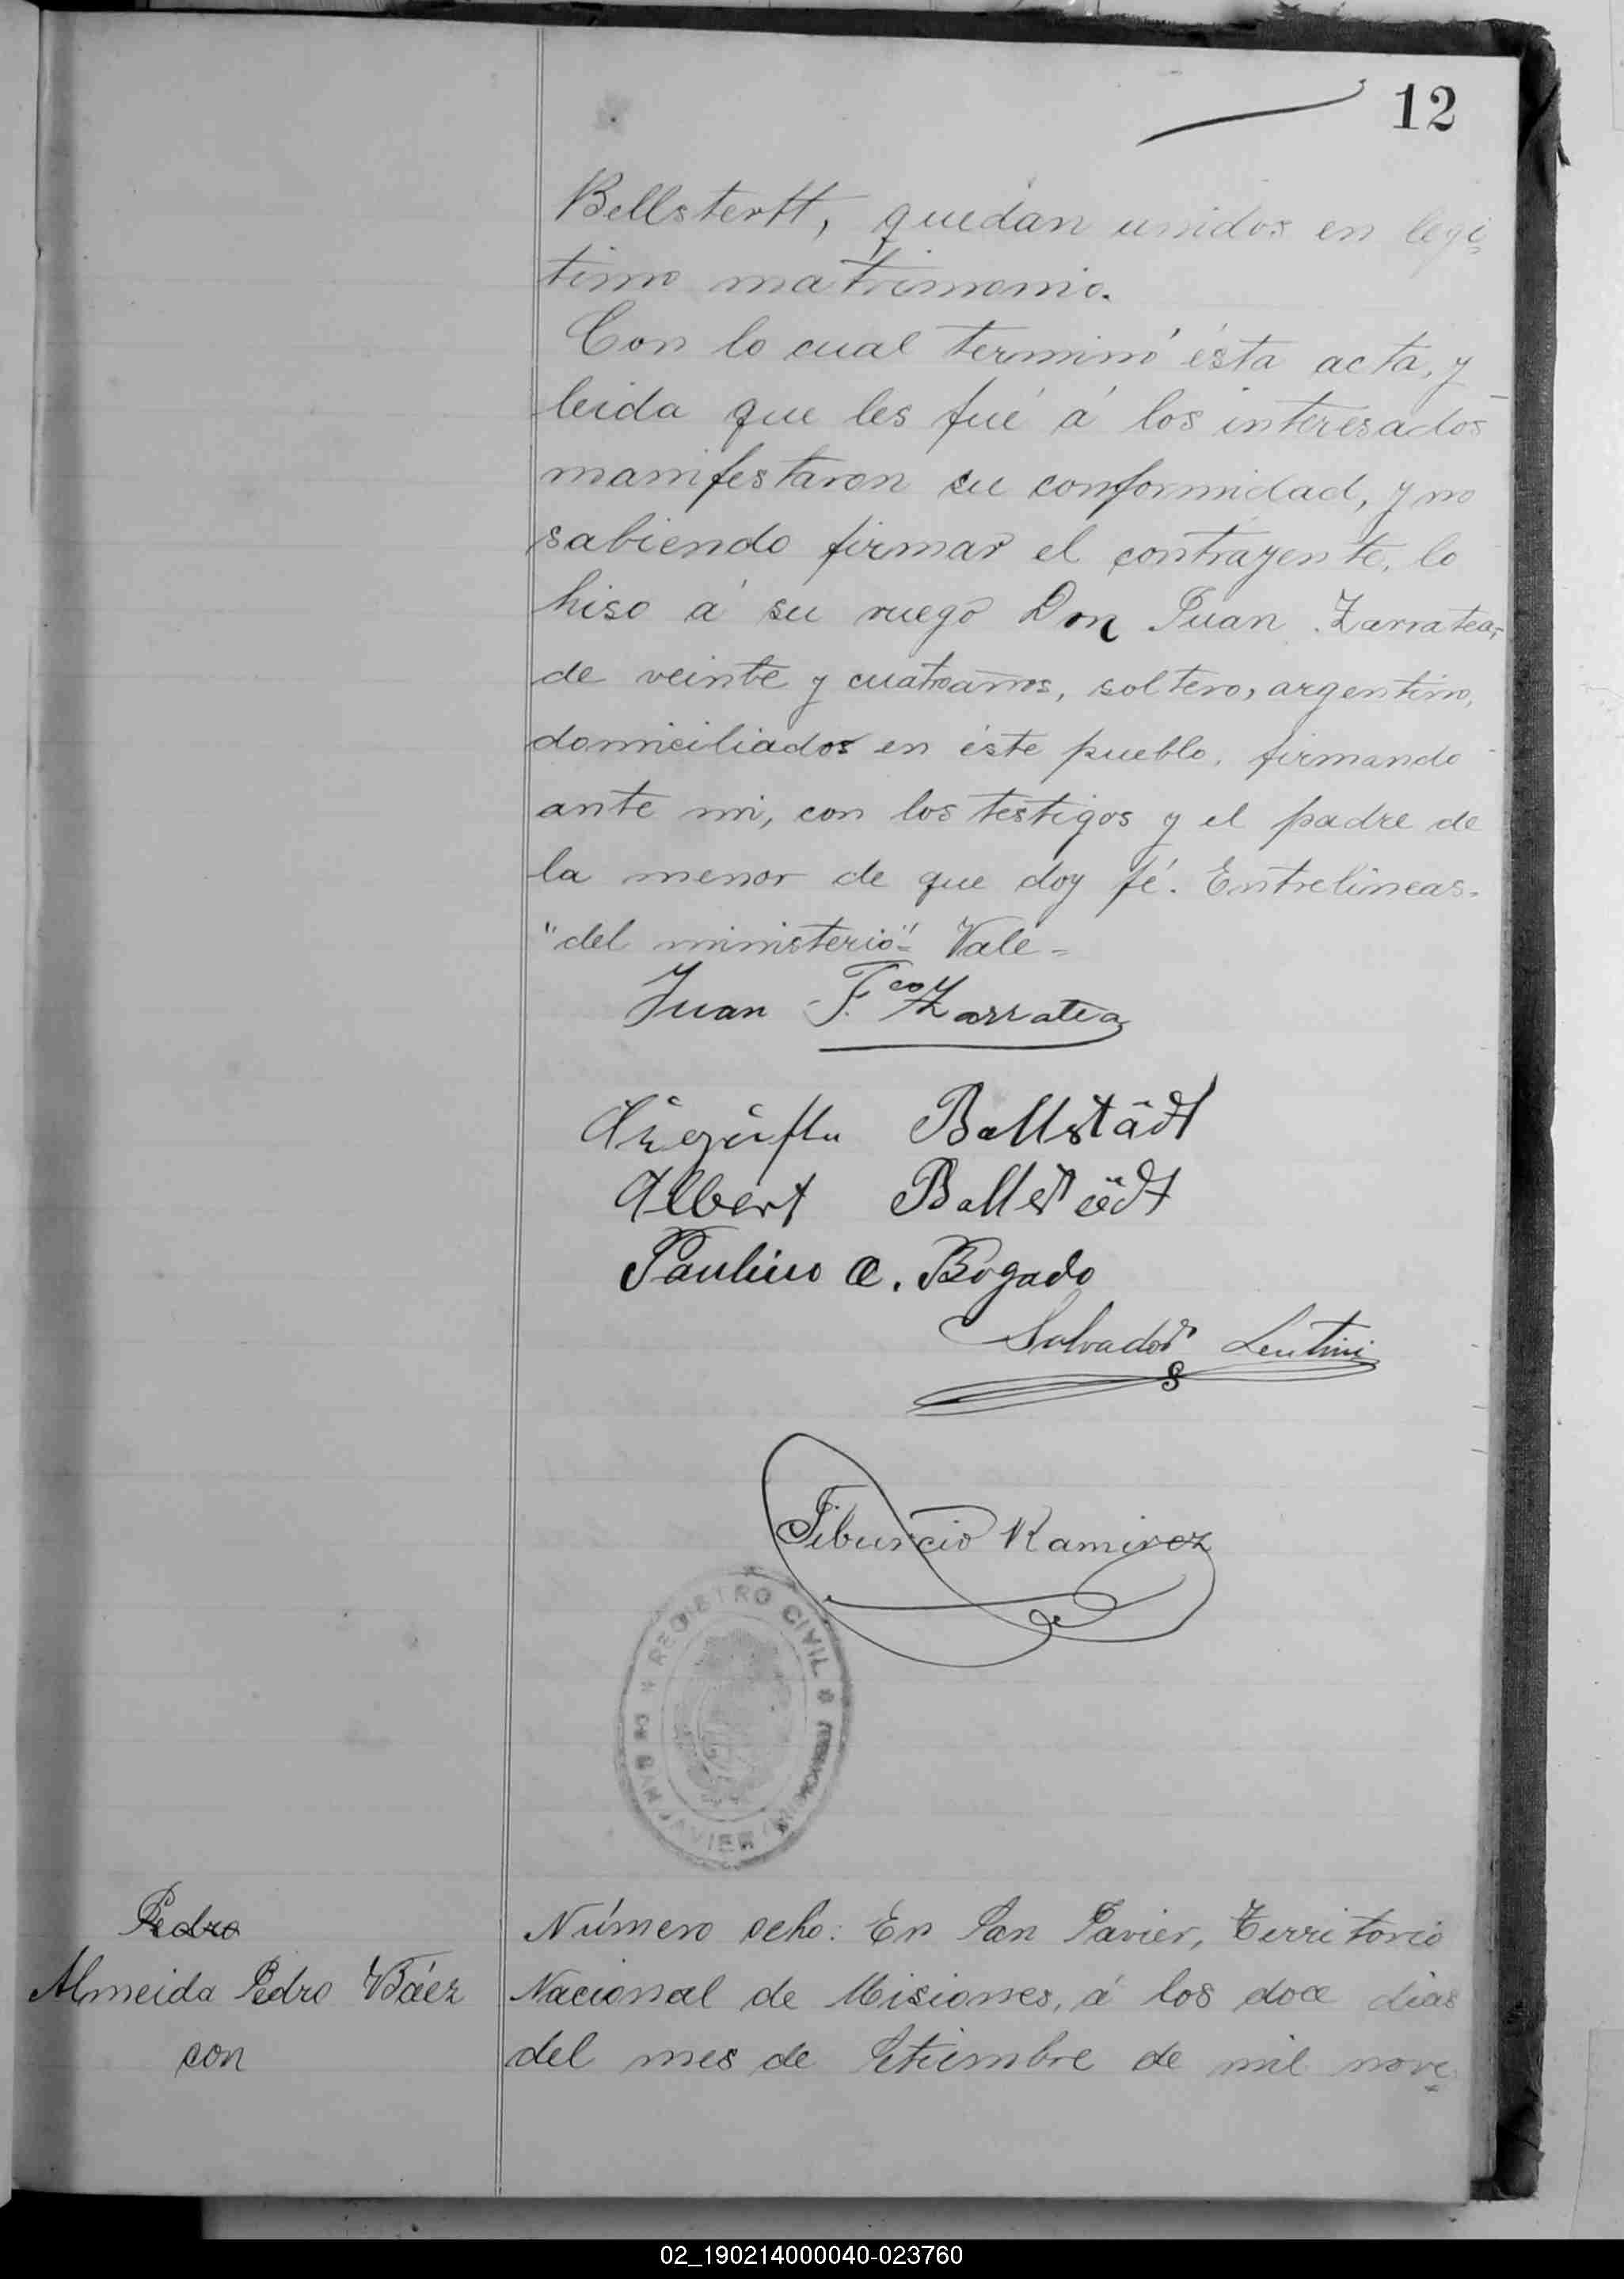 12
Bellstertt, quedan unidos en legi
timo matrimonio.
Con lo cual terminó ésta acta, y
leida que les fué á los interesados
manifestaron su conformidad, y no
sabiendo firmar el contrayente, lo
hiso á su ruego Don Juan Zarratea,
de veinte y cuatro años, soltero, argentino,
domiciliados en éste pueblo, firmando
ante mi, con los testigos y el padre de
la menor de que doy fé. Entrelineas-
"del ministerio"= Vale=
Juan F.co Zarratea
Ballstädt
Albert Ballstädt
Paulino A. Bogado
Salvador Lentini
Tiburcio Ramirez
REGISTRO CIVIL
SAN JAVIER
Pedro
Almeida Pedro Báez
con
Número ocho: En San Javier, Territorio
Nacional de Misiones, á los doce dias
del mes de Setiembre de mil nove
02_190214000040-023760